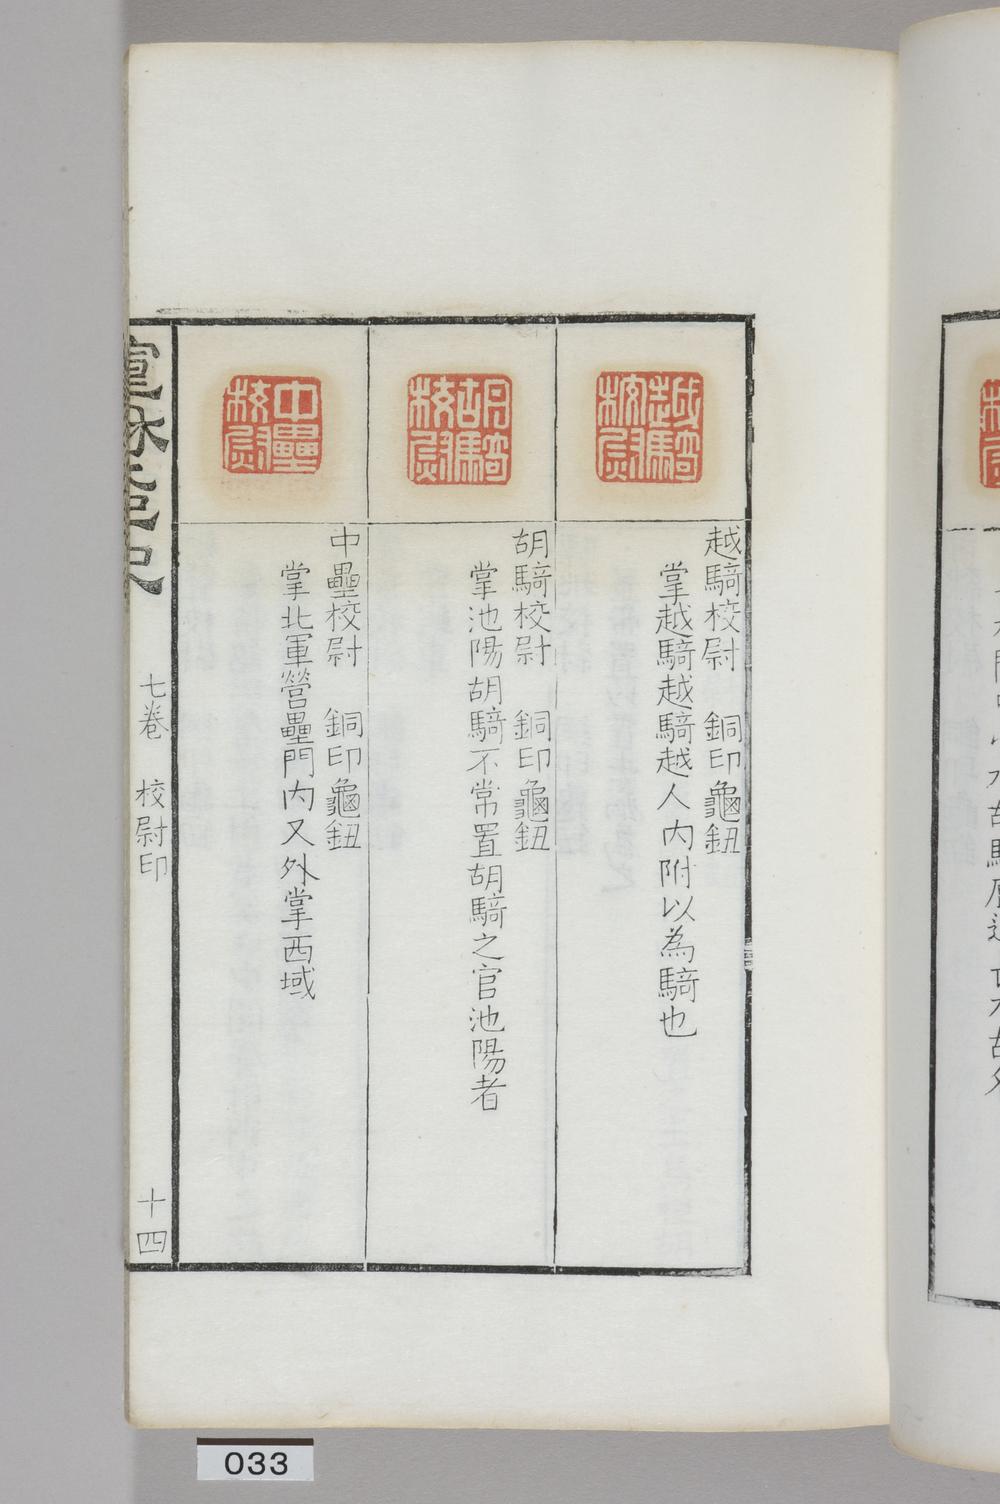 越騎校尉
越騎校尉　銅印龜鈕
掌越騎越騎越人內附以為騎也
胡騎校尉
胡騎校尉　銅印龜鈕
掌池陽胡騎不常置胡騎之官池陽者
中壘校尉
中壘校尉　銅印龜鈕
掌北軍營壘門內又外掌西域
七卷　校尉印　十四
033